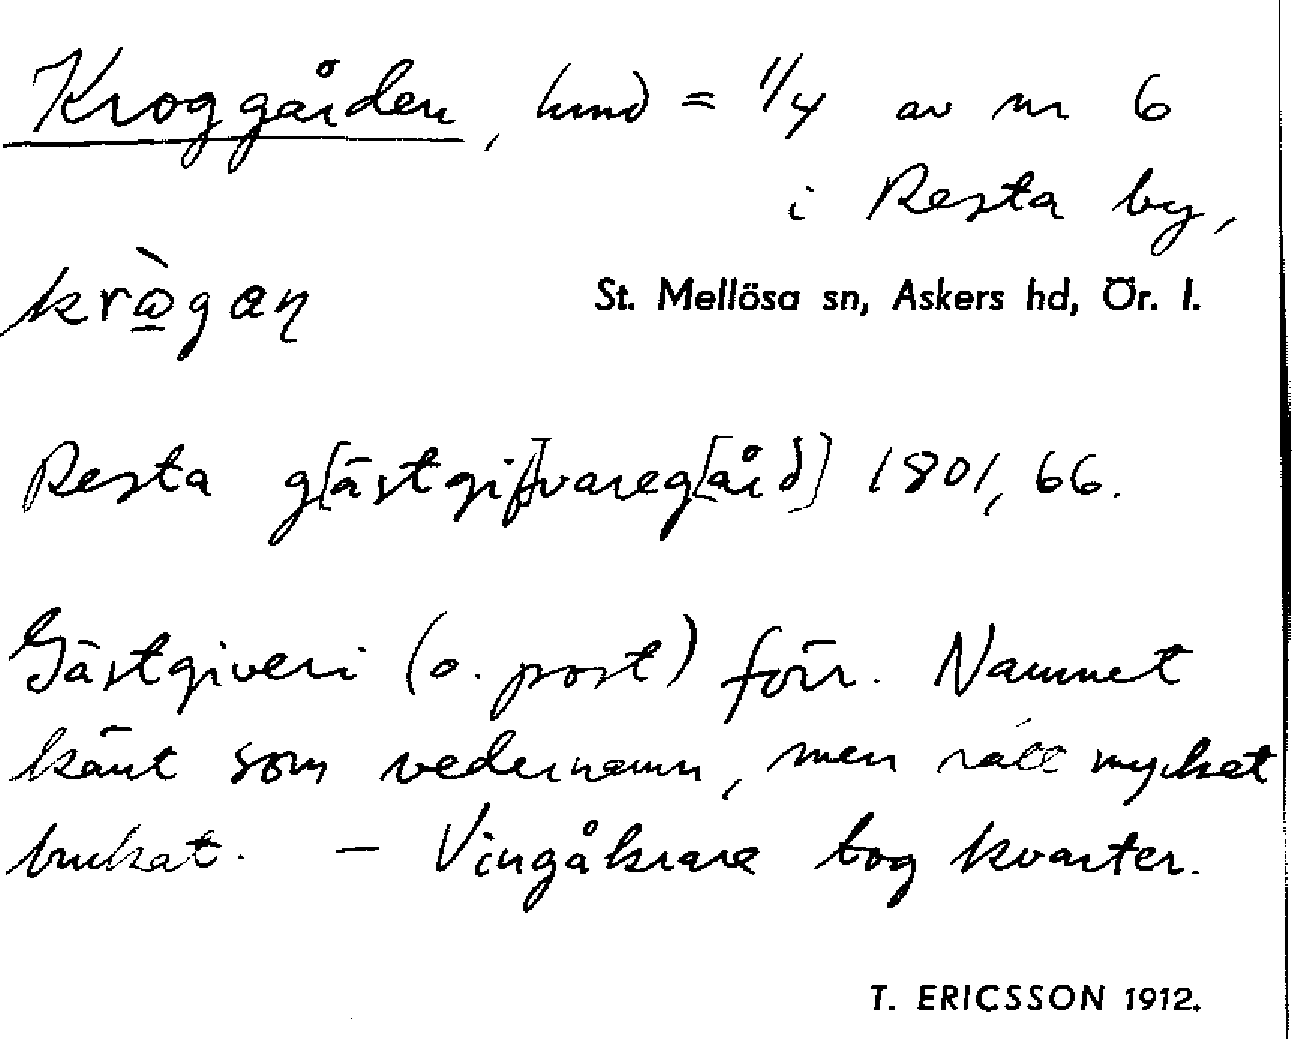 Kroggården, hmd = 1/4 av nr 6
i Resta by,
krògan
St. Mellösa sn, Askers hd, Ör. l.
Resta g[ästgif]vareg[ård] 1801, 66.
Gästgiveri (o. post) förr. Namnet
känt som vedernamn, men rätt mycket
brukat. – Vingåkrare tog kvarter.
T. ERICSSON 1912.